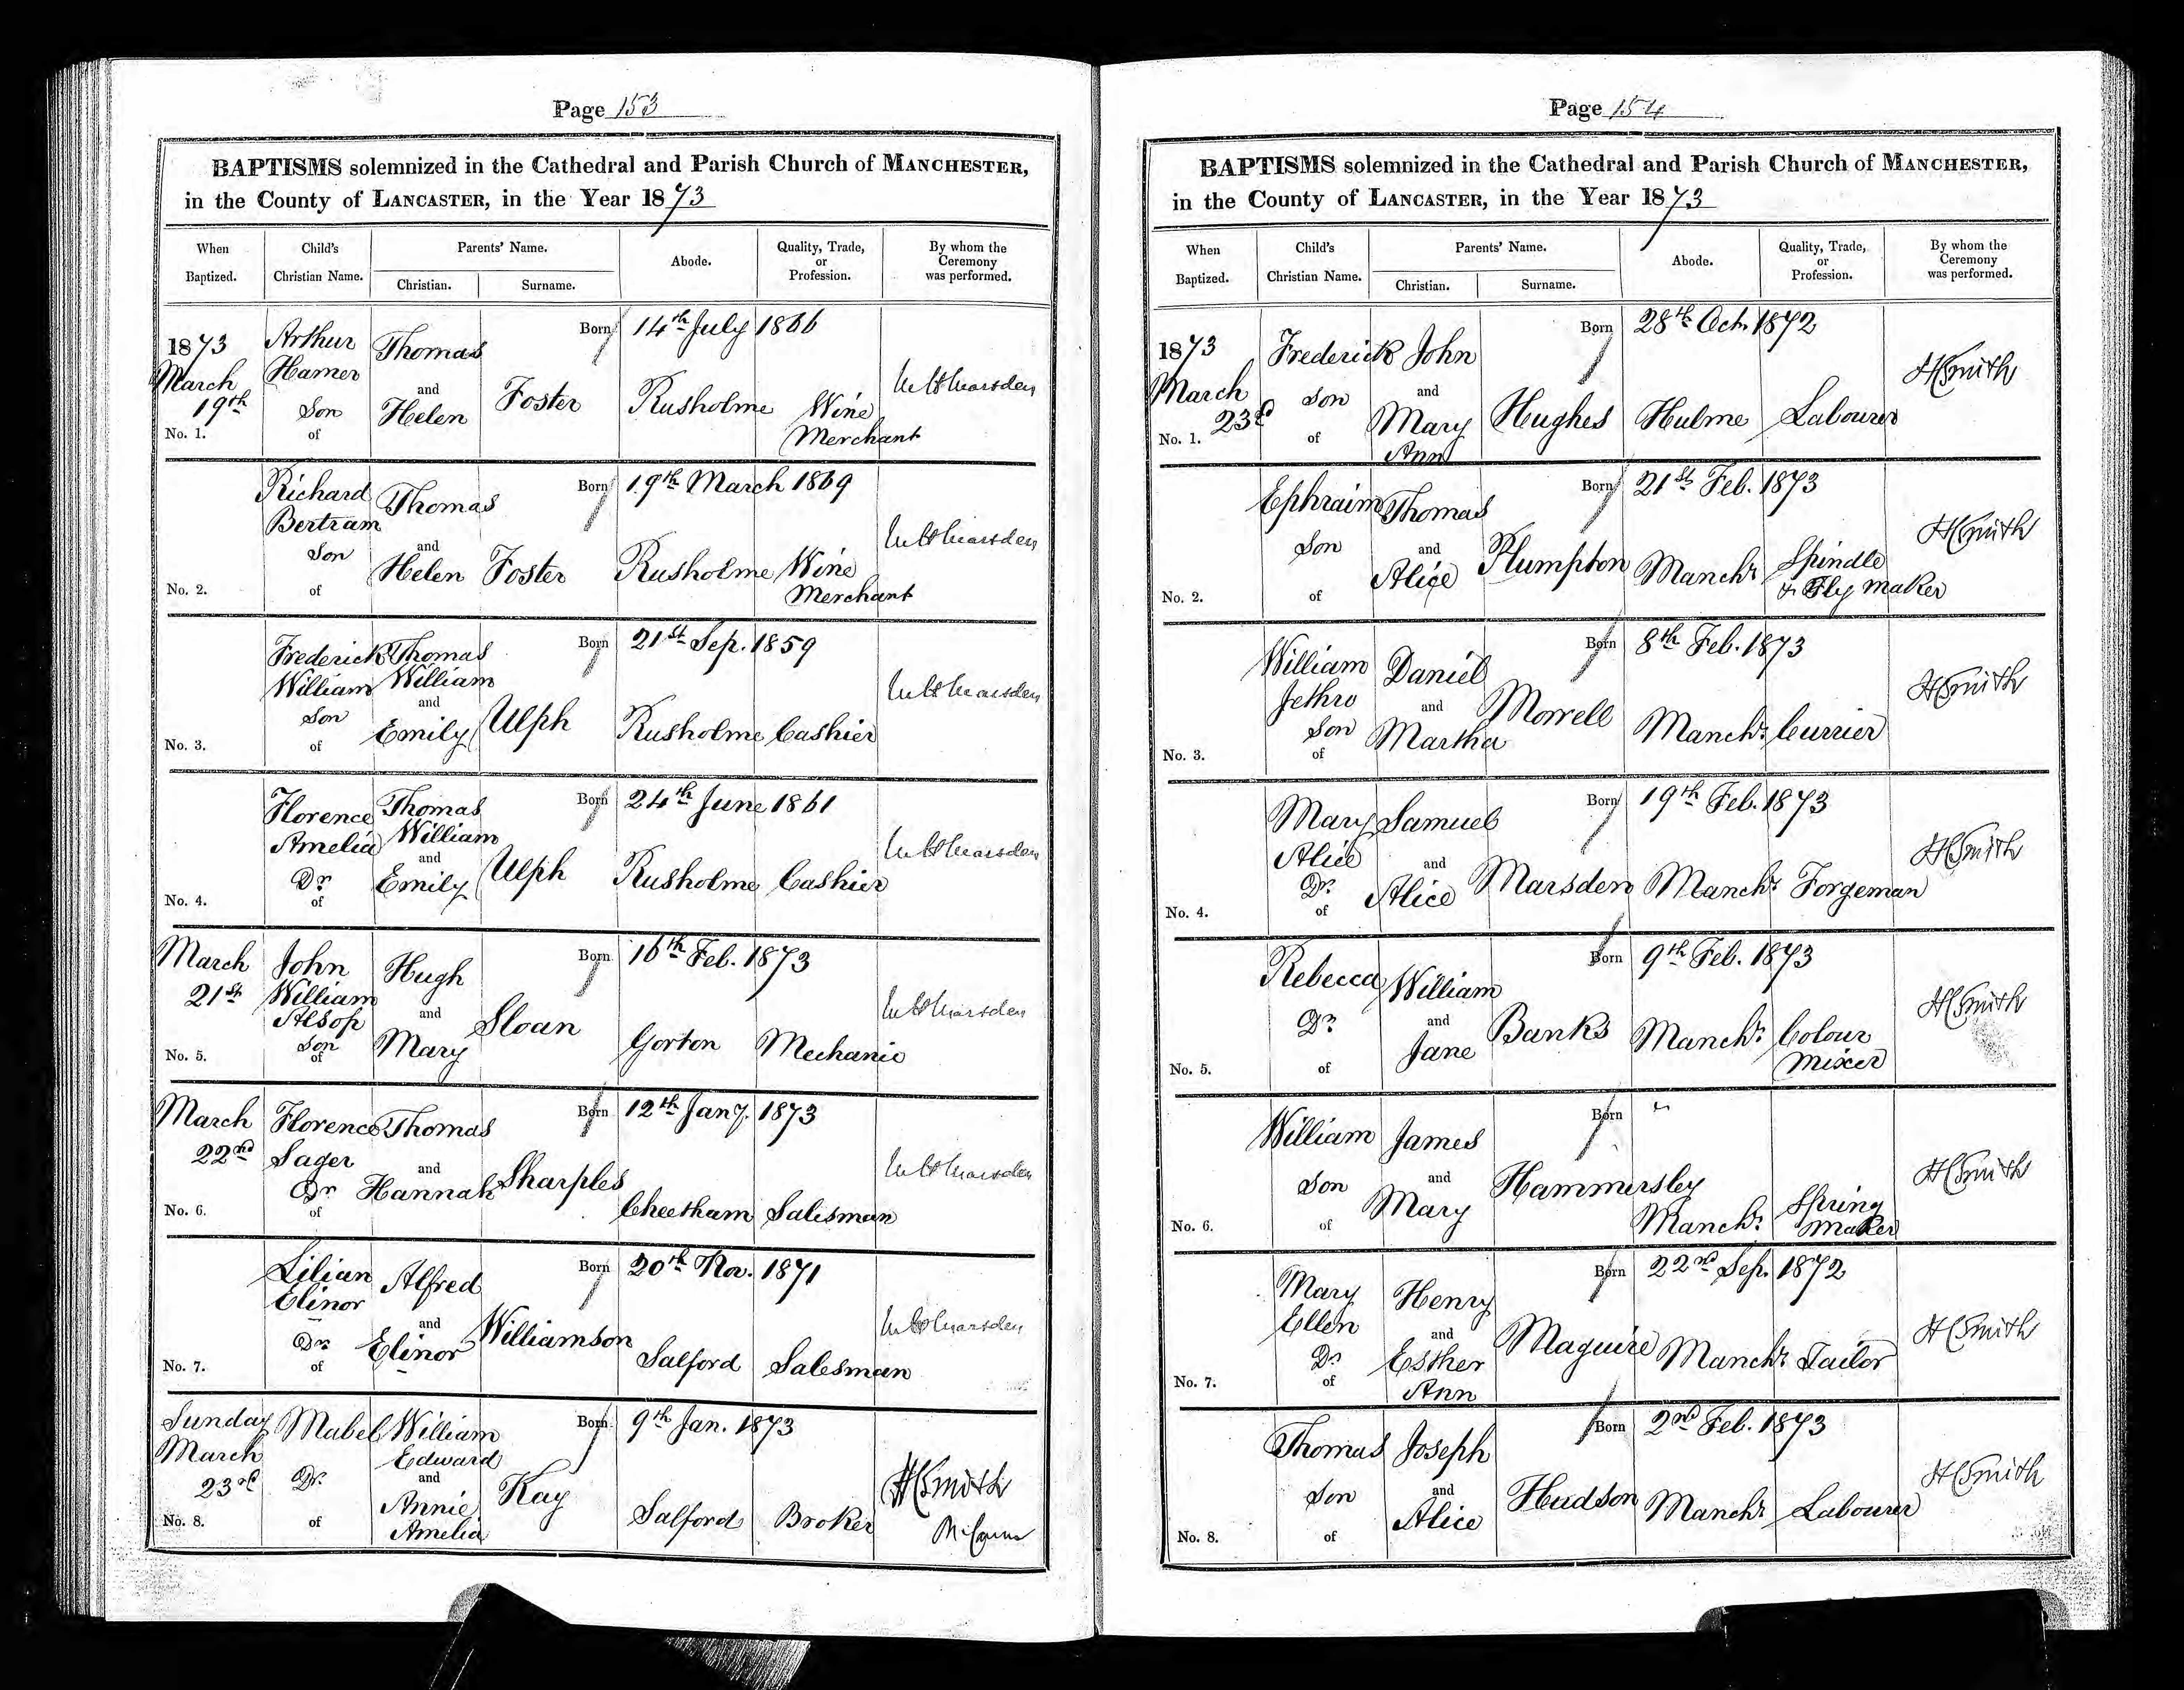 Page 153
BAPTISMS solemnized in the Cathedral and Parish Church of MANCHESTER,
in the County of LANCASTER, in the Year 1873
When Baptized. Child's Christian Name. Parents' Name. Christian. Surname. Abode. Quality, Trade, or Profession. By whom the Ceremony was performed.
Born 14th July 1866
1873 March 19th
No. 1.
Arthur Hamer Son of
Thomas and Helen
Foster
Rusholme
Wine Merchant
Marsden
Born 19th March 1869
No. 2.
Richard Bertram Son of
Thomas and Helen
Foster
Rusholme
Wine Merchant
Marsden
Born 21st Sep. 1859
No. 3.
Frederick William Son of
Thomas William and Emily
Ulph
Rusholme
Cashier
Marsden
Born 24th June 1861
No. 4.
Florence Amelia Dr of
Thomas William and Emily
Ulph
Rusholme
Cashier
Marsden
Born 16th Feb. 1873
March 21st
No. 5.
John William Alsop Son of
Hugh and Mary
Sloan
Gorton
Mechanic
Marsden
Born 12th Jany. 1873
March 22nd
No. 6.
Florence Sager Dr of
Thomas and Hannah
Sharples
Cheetham
Salesman
Marsden
Born 20th Nov. 1871
No. 7.
Lilian Elinor Dr of
Alfred and Elinor
Williamson
Salford
Salesman
Marsden
Born 9th Jan. 1873
Sunday March 23rd
No. 8.
Mabel Dr. of
William Edward and Annie Amelia
Kay
Salford
Broker
H C Smith
Page 154
BAPTISMS solemnized in the Cathedral and Parish Church of MANCHESTER,
in the County of LANCASTER, in the Year 1873
When Baptized. Child's Christian Name. Parents' Name. Christian. Surname. Abode. Quality, Trade, or Profession. By whom the Ceremony was performed.
Born 28th Oct. 1872
1873 March 23d
No. 1.
Frederick Son of
John and Mary Ann
Hughes
Hulme
Labourer
H C Smith
Born 21st Feb. 1873
No. 2.
Ephraim Son of
Thomas and Alice
Plumpton
Manchr
Spindle & Fly Maker
H C Smith
Born 8th Feb. 1873
No. 3.
William Jethro Son of
Daniel and Martha
Morrell
Manchr.
Currier
H C Smith
Born 19th Feb. 1873
No. 4.
Mary Alice Dr. of
Samuel and Alice
Marsden
Manchr
Forgeman
H C Smith
Born 9th Feb. 1873
No. 5.
Rebecca Dr. of
William and Jane
Banks
Manchr.
Colour Mixer
H C Smith
Born
No. 6.
William Son of
James and Mary
Hammersley
Manchr.
Spring Maker
H C Smith
Born 22nd Sep. 1872
No. 7.
Mary Ellen Dr of
Henry and Esther Ann
Maguire
Manchr
Tailor
H C Smith
Born 2nd Feb. 1873
No. 8.
Thomas Son of
Joseph and Alice
Hudson
Manchr
Labourer
H C Smith